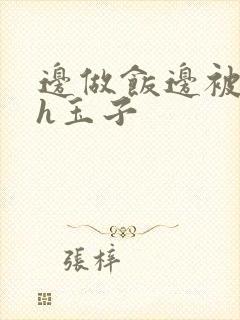 邊做飯邊被
h玉子
張梓